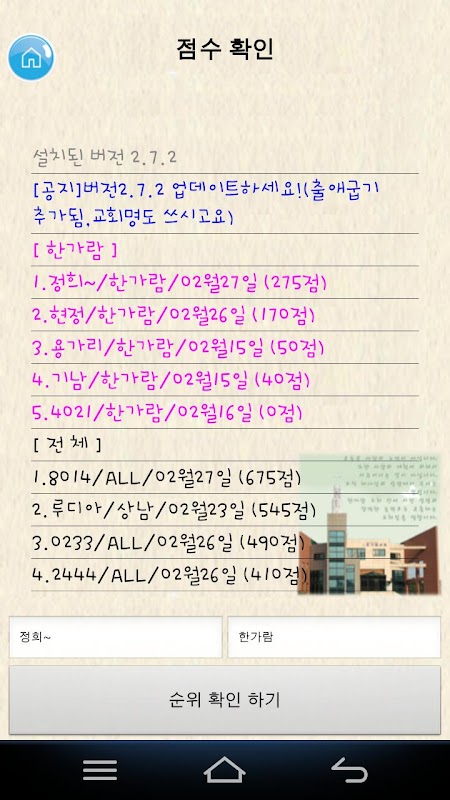 점수 확인
설치된 버전 2.7.2
[공지]버전2.7.2 업데이트하세요!(출애굽기
추가됨.교회명도 쓰시고요)
[ 한가람 ]
1.정희~/한가람/02월27일 (275점)
2.현정/한가람/02월26일 (170점)
3.용가리/한가람/02월15일 (50점)
4.기남/한가람/02월15일 (40점)
5.4021/한가람/02월16일 (0점)
[ 전 체 ]
1.8014/ALL/02월27일 (675점)
2.루디아/상남/02월23일 (545점)
3.0233/ALL/02월26일 (490점)
4.2444/ALL/02월26일 (410점)
정희~
한가람
순위 확인 하기